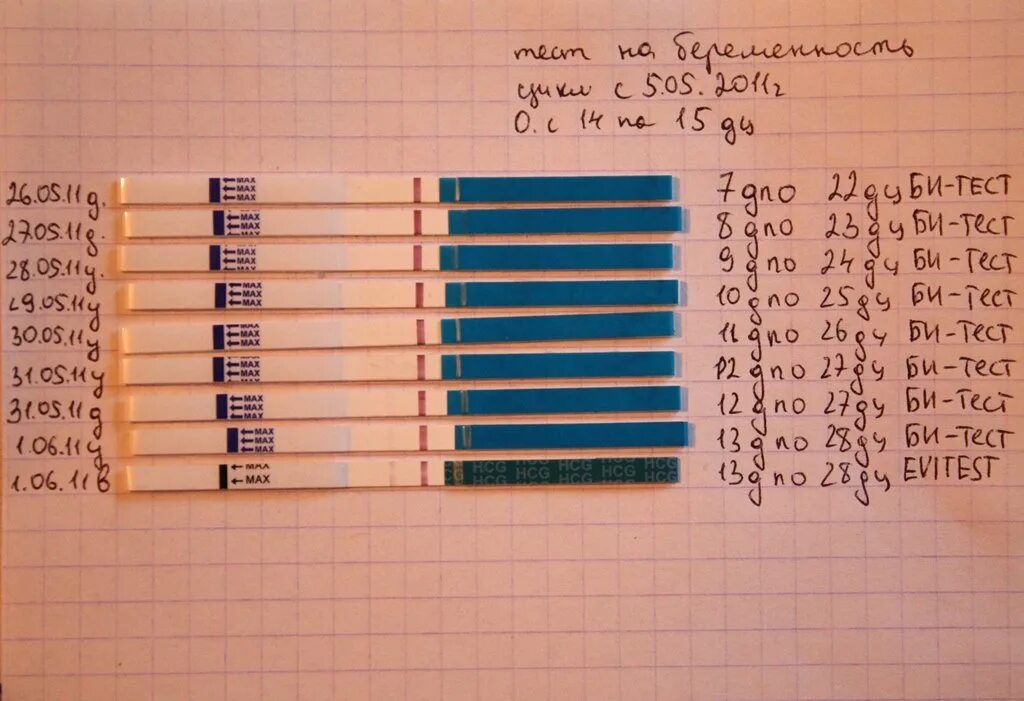 тест на беременность
цикл с 5.05.2011г
О. с 14 по 15 дц
26.05.11 д. MAX MAX MAX 7 дпо 22 дц БИ-ТЕСТ
27.05.11 д. MAX MAX MAX 8 дпо 23 дц БИ-ТЕСТ
28.05.11 у. MAX MAX MAX 9 дпо 24 дц БИ-ТЕСТ
29.05.11 у MAX MAX MAX 10 дпо 25 дц БИ-ТЕСТ
30.05.11 у MAX MAX MAX 11 дпо 26 дц БИ-ТЕСТ
31.05.11 у MAX MAX MAX 12 дпо 27 дц БИ-ТЕСТ
31.05.11 д MAX MAX MAX 12 дпо 27 дц БИ-ТЕСТ
1.06.11 у MAX MAX MAX 13 дпо 28 дц БИ-ТЕСТ
1.06.11 в MAX MAX HCG HCG HCG HCG HCG HCG HCG HCG 13 дпо 28 дц EVITEST